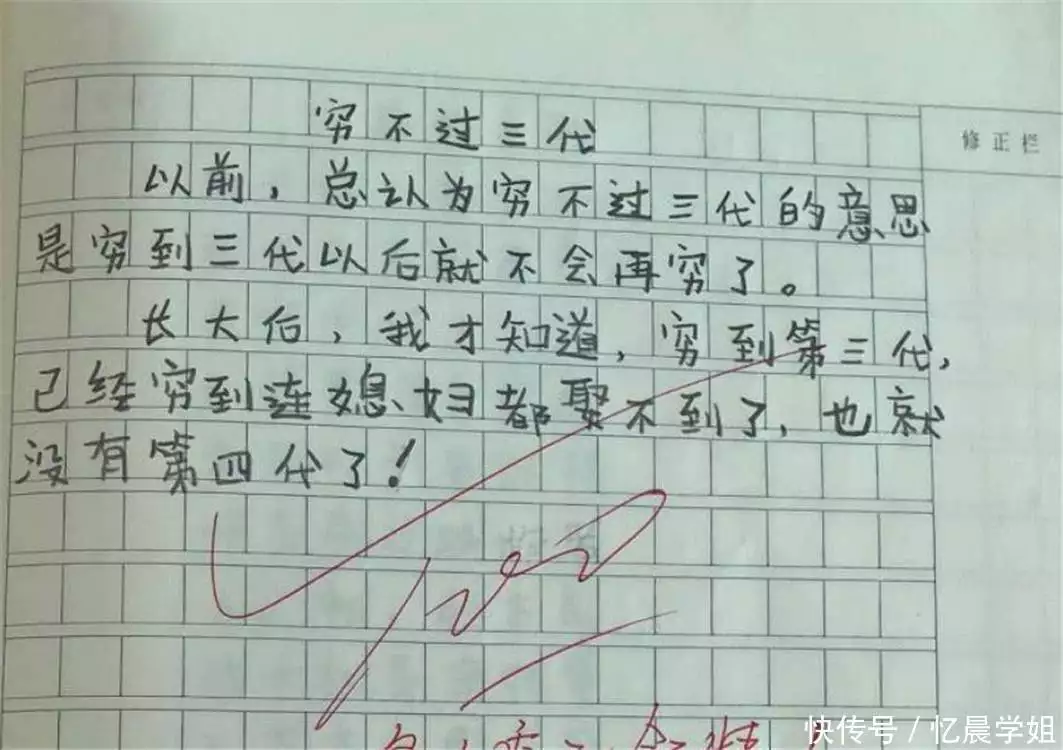 穷不过三代
修正栏
以前，总认为穷不过三代的意思
是穷到三代以后就不会再穷了。
长大后，我才知道，穷到第三代，
已经穷到连媳妇都娶不到了，也就
没有第四代了！
快传号 / 忆晨学姐